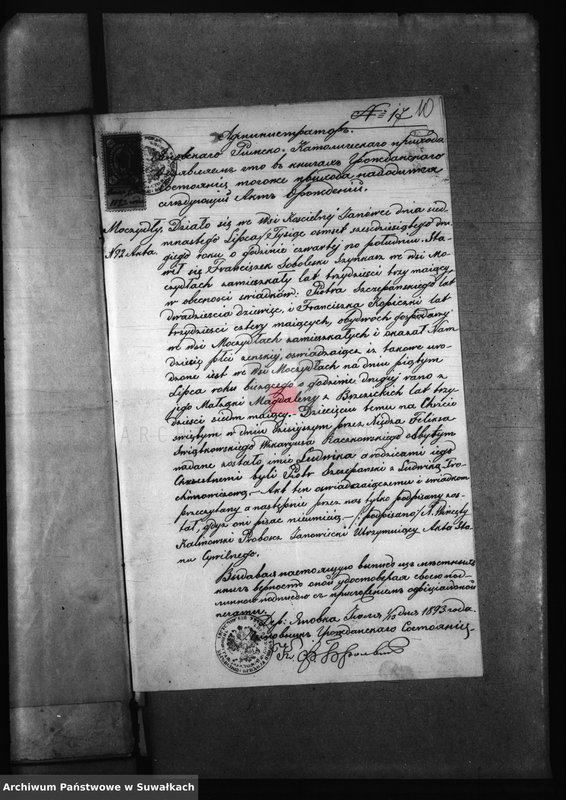 № 17 10
Администраторъ
Яновскаго Римско-Католическаго прихода
объявляетъ что въ книгахъ Гражданскаго
Состоянія тогоже прихода находится
слѣдующій Актъ Врожденій.
Moczydły. Działo się we Wsi Kościelny Janówce dnia siedm
N 92 Акта. nnastego Lipca Tysiąc osmset sześćdziesiątego dru
giego roku o godzinie czwarty po południu. Sta
wił się Franciszek Soboleski Szynkarz we Wsi Mo
czydłach zamieszkały lat trzydzieści trzy maiący,
w obecności świadków: Piotra Szczepańskiego lat
dwadzieścia dziewięć, i Franciszka Kopiczki lat
trzydzieści cztery maiących, obydwóch gospodarzy
we Wsi Moczydłach zamieszkałych i okazał Nam
dziecię płci żenskiej, oświadczaiąc iż takowe uro
dzone iest we Wsi Moczydłach na dniu piątym
Lipca roku bieżącego o godzinie drugiej rano z
jego Małżonki Magdaleny z Brzezickich lat trzy
dzieści siedm maiący. Dziecięciu temu na Chrzcie
Świętym w dniu dzisiejszym przez Xiędza Felixa
Świątkowskiego Wikaryusza Raczkowskiego odbytym
nadane zostało imie Ludwika a rodzicami iego
Chrzestnemi byli Piotr Szczepański z Ludwiką
Akt ten oświadczaiącemu i świadkom
przeczytany a następnie przez nas tylko podpisany zos
tał, gdyż oni pisać nieumieią. (podpisano) X. Wincenty
Kalinowski Proboszcz Janowiecki Utrzymuiący Akta Sta
nu Cywilnego.
Выдавая настоящую выпись изъ мѣстныхъ
книгъ верность оной удостоверяя своею под
линною подписью съ приложеніемъ оффиціальной
печати.
Дер. Яновка дня 1893 года.
Чиновникъ Гражданскаго Состоянія
К.
Archiwum Państwowe w Suwałkach